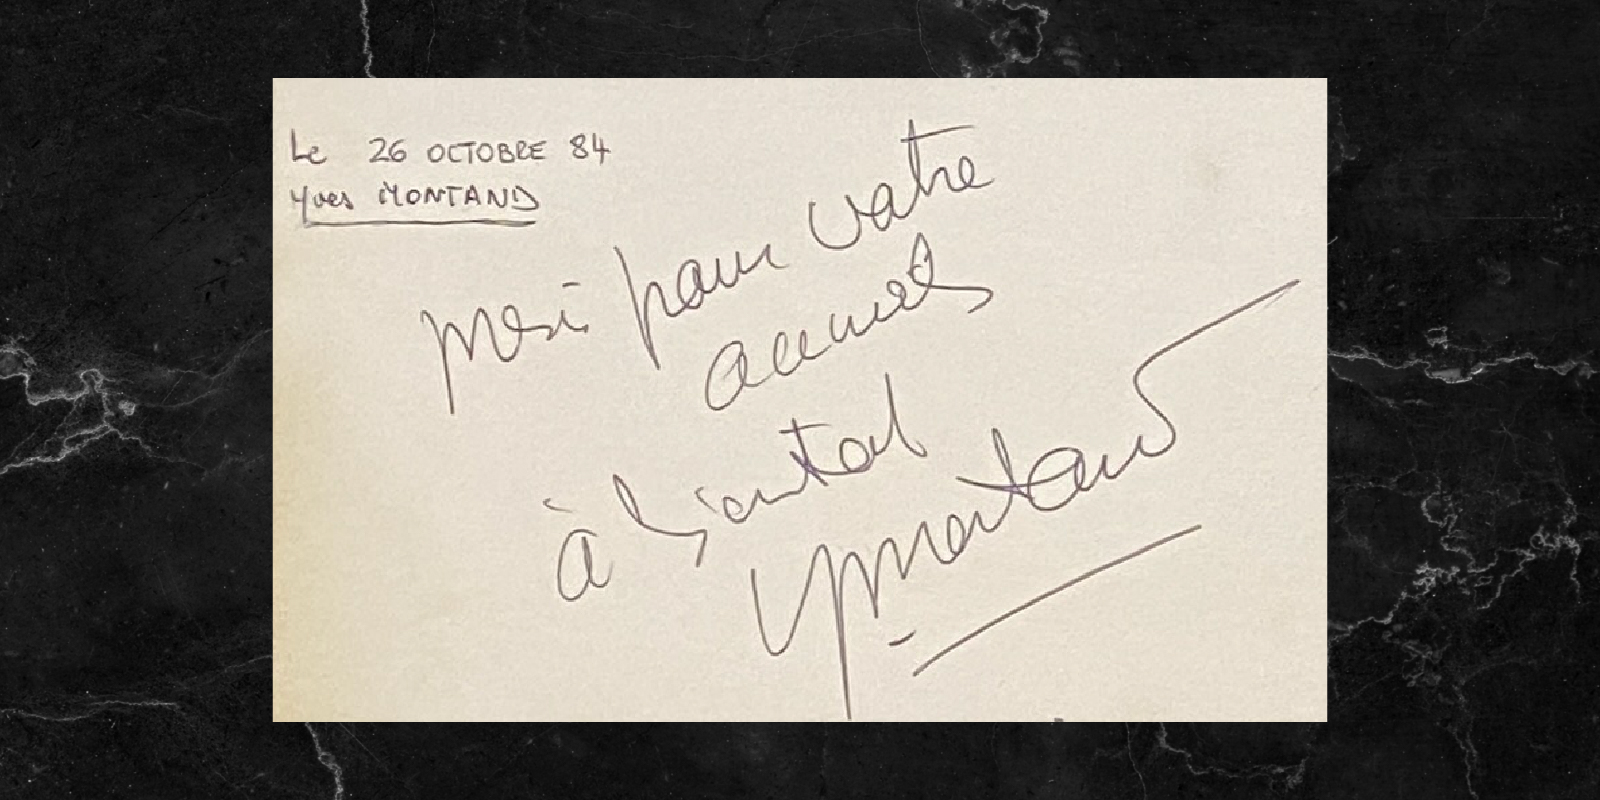 Le 26 OCTOBRE 84
Yves MONTAND
Merci pour votre
accueil
à bientôt
YMontand